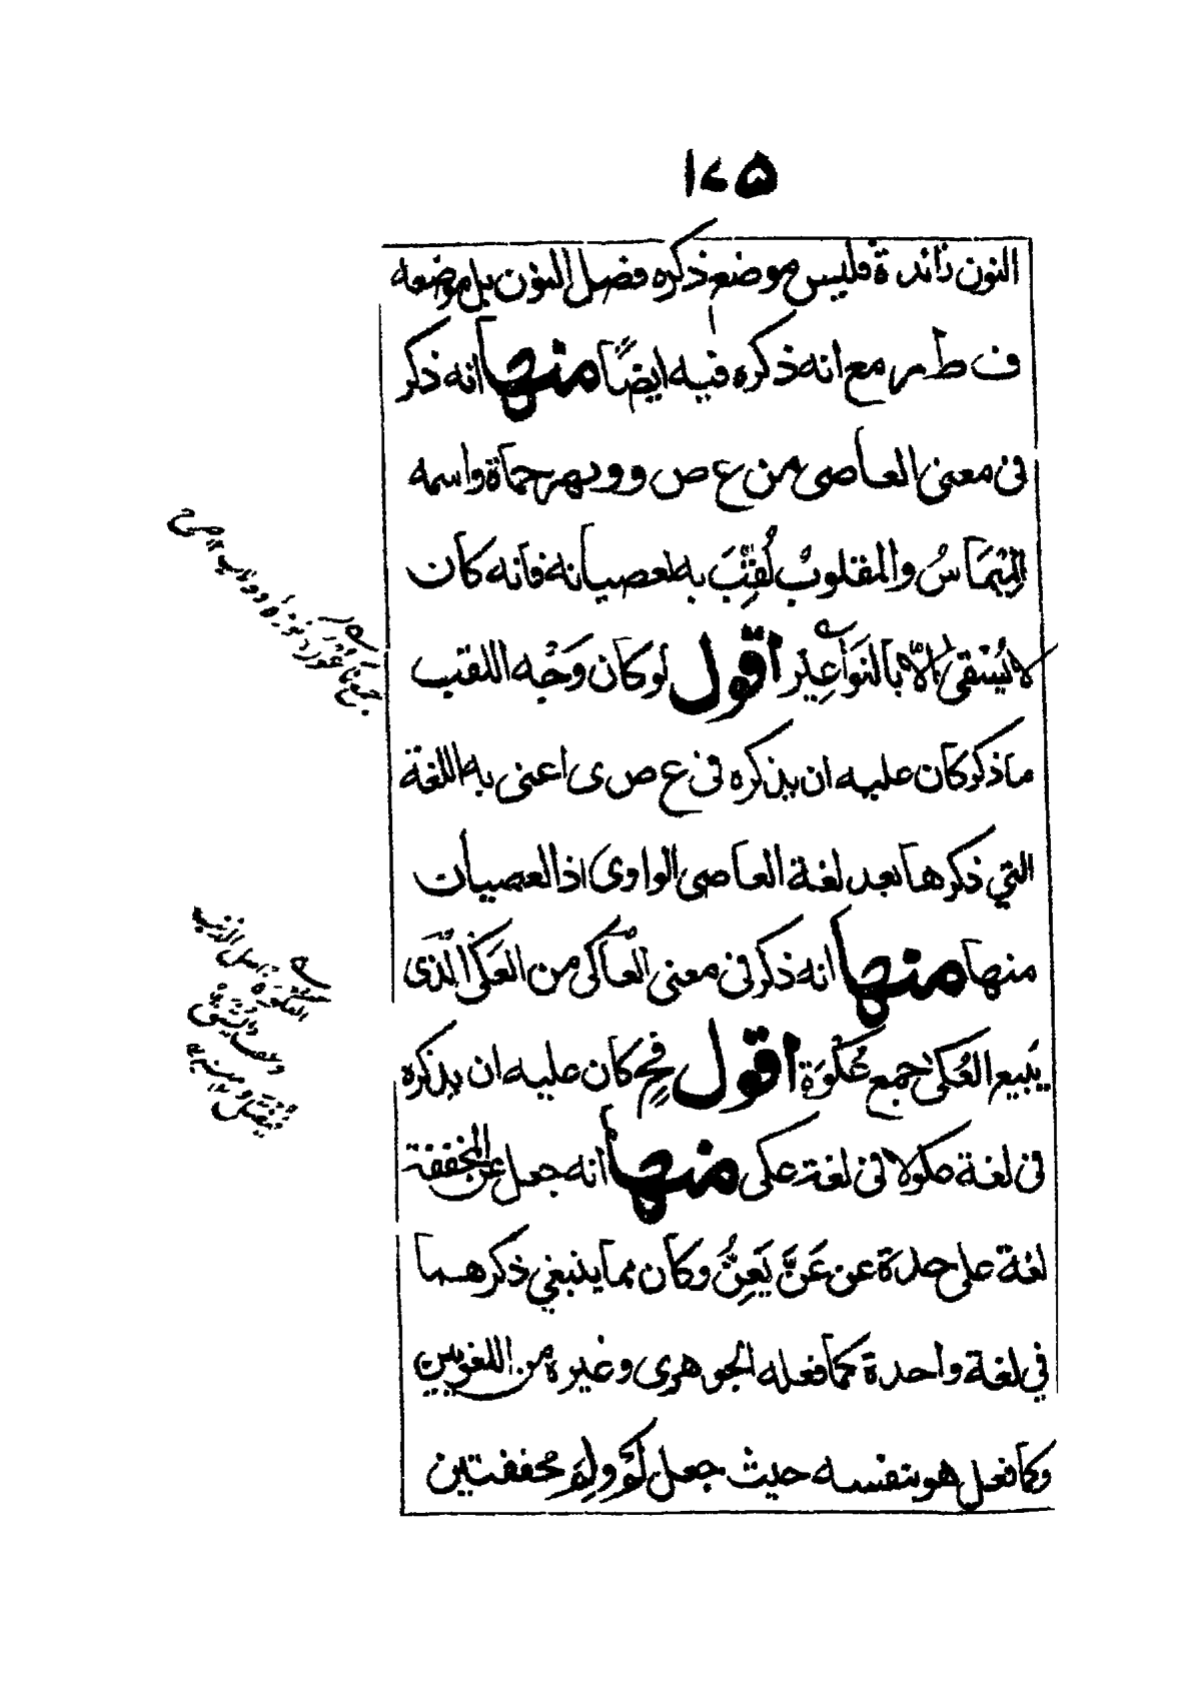 ١٢٥
النون زائدة فليس موضع ذكره فصل النون بل موضعه
ف ط ر مع انه ذكره فيه ايضًا منها انه ذكر
فى معنى العاصى من ع ص و ونهر حماة واسمه
المِيْمَاسُ والمقلوبُ لُقِّبَ به لعصيانه فانه كان
لا يُسْتقىٰ الّا بالنَوَاعِيْر اقول لو كان وَجْه اللقب
ما ذكر كان عليه ان يذكره فى ع ص ى اعنى به اللغة
التي ذكرها بعد لغة العاصى الواوى اذ العصيان
منها منها انه ذكر فى معنى العَاكى من العَكىٰ الّذى
يَبيع العُكىٰ جمع عُكْوَة اقول فحٍ كان عليه ان يذكره
فى لغة عكو لا فى لغة عكى منها انه جعل عن المخففة
لغة على حدة عن عَنَّ يَعِنُّ وكان مما ينبغي ذكرهما
في لغة واحدة كما فعله الجوهرى وغيره من اللغويين
وكما فعل هو بنفسه حيث جعل لَوْ ولِمَ مخففتين
جمع نَاعُوْرَة
العكوة اصل الذنب